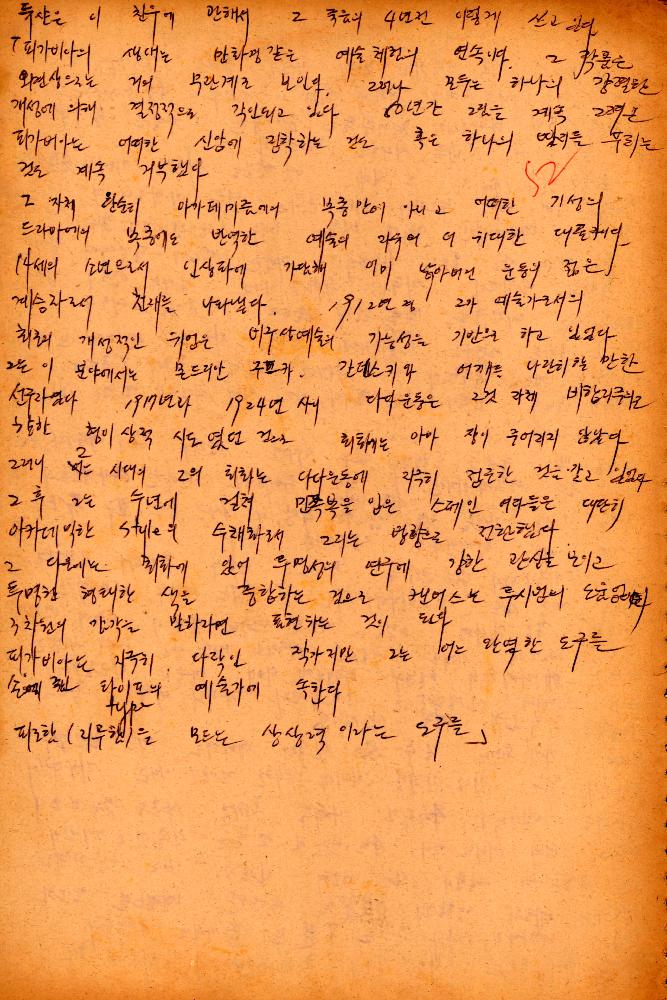 듀샹은 이 친우에 관해서 그 죽음의 4년전 이렇게 쓰고 있다
「피카비아의 생애는 만화경같은 예술체험의 연속이다. 그 작품은
외면상으로는 거의 무관계로 보인다. 그러나 모두는 하나의 강렬한
개성에 의해 결정적으로 각인되고 있다 60년간 그림을 계속 그려온
피카비아는 어떠한 신앙에 집착하는 것도 혹은 하나의 을 푸리는
것도 계속 거부했다
52
그 자체 완순히 아카데미즘에의 복종만이 아니고 어떠한 기성의
드라마에의 복종에도 반역한 예술의 자유의 더 위대한 대표자다
14세의 소년으로서 인상파에 가담해 이미 낡아버린 운동의 젊은
계승자로서 천재를 나타냈다. 1912년경 그가 예술가로서의
최초의 개성적인 위업은 비구상예술의 가능성을 기반으로 하고 있었다
그는 이 분야에서는 몬드리안 쿠프카. 간딘스키와 어깨를 나란히할 만한
선구자였다 1917년과 1924년 사이 다다운동은 그것 자체 비합리주의로
향한 형이상학적 시도였던 것으로 회화에는 아마 장이 주어지지 않았다
그러나 그 시대의 그의 회화는 다다운동에 지극히 접근한 것을 갖고 있었다
그 후 그는 수년에 걸쳐 민족복을 입은 스페인 여자들은 대단히
아카데믹한 style의 수채화로서 그리는 방향으로 전환했다
그 다음에는 회화에 있어 투명성의 연구에 강한 관심을 보이고
투명한 형태한 색을 종합하는 것으로 캔버스는 투시법의 도움없이
3차원의 감각을 말하자면 표현하는 것이 된다
피카비아는 지극히 다작인 작가지만 그는 어느 완벽한 도구를
손에 쥔 타이프의 예술가에 속한다
type
피로할(리투할)을 모르는 상상력이라는 도구를」